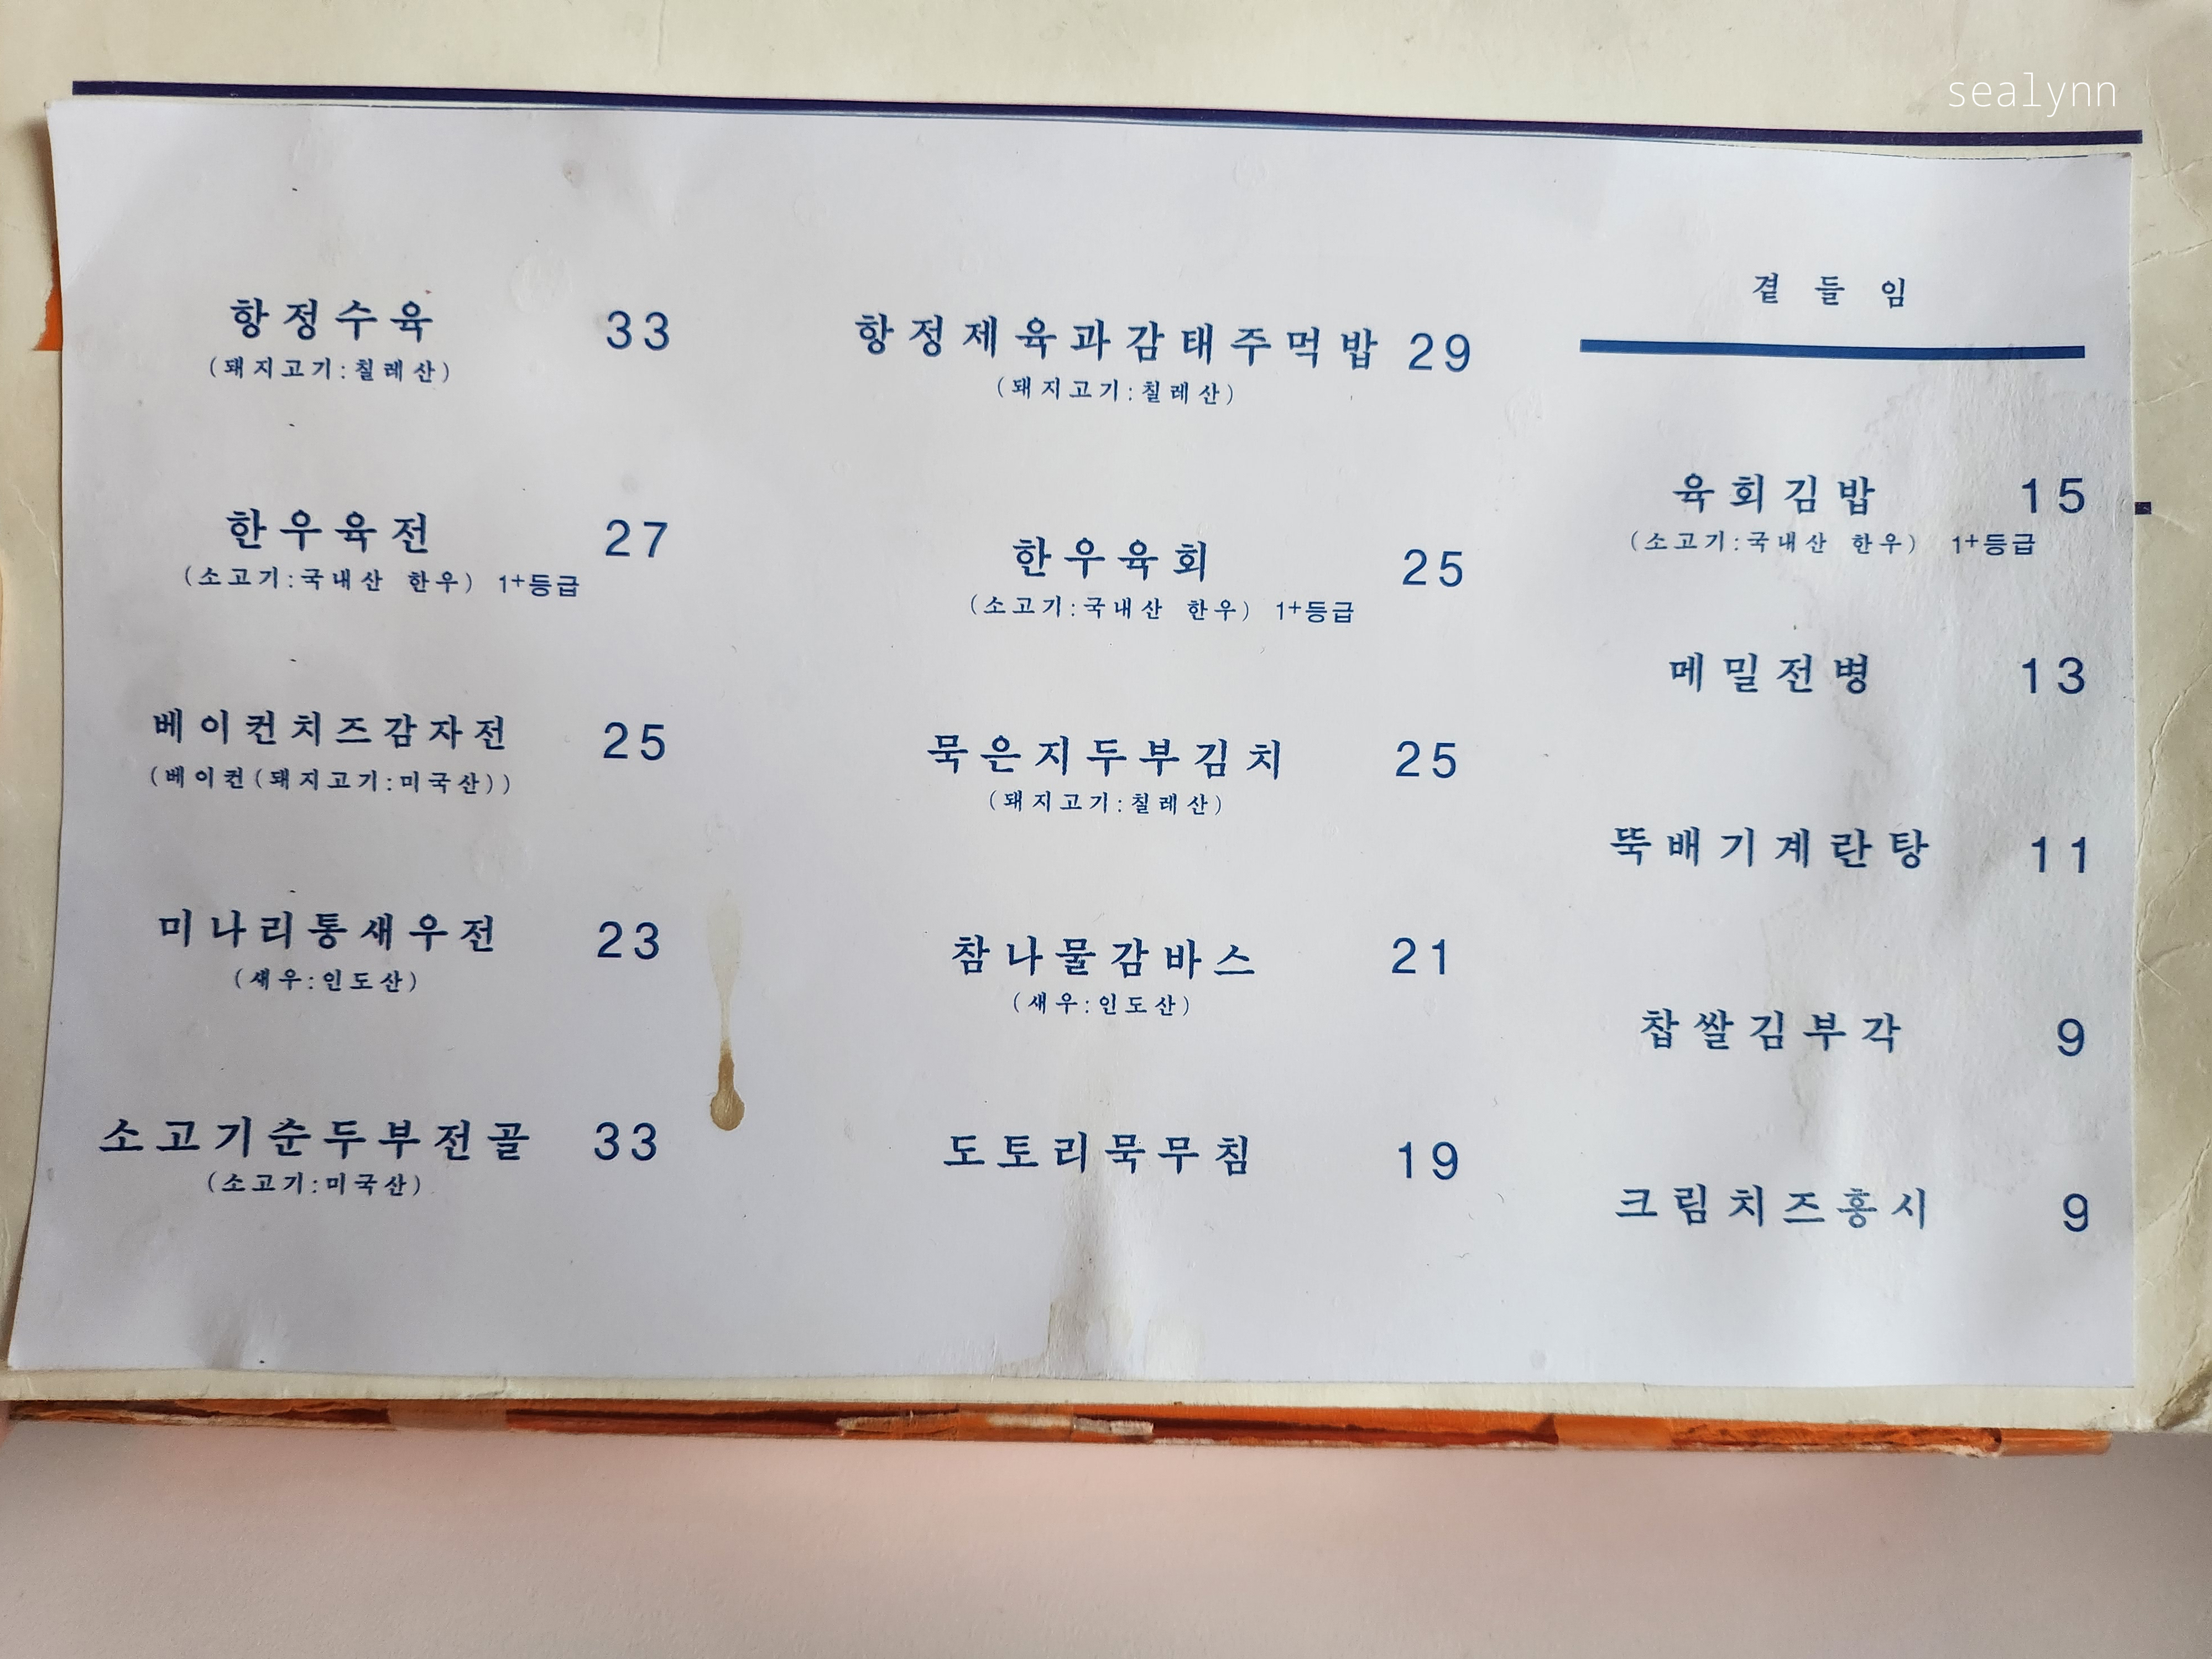 sealynn
항정수육 33
(돼지고기:칠레산)
한우육전 27
(소고기:국내산 한우) 1+등급
베이컨치즈감자전 25
(베이컨(돼지고기:미국산))
미나리통새우전 23
(새우:인도산)
소고기순두부전골 33
(소고기:미국산)
항정제육과감태주먹밥 29
(돼지고기:칠레산)
한우육회 25
(소고기:국내산 한우) 1+등급
묵은지두부김치 25
(돼지고기:칠레산)
참나물감바스 21
(새우:인도산)
도토리묵무침 19
곁들임
육회김밥 15
(소고기:국내산 한우) 1+등급
메밀전병 13
뚝배기계란탕 11
찹쌀김부각 9
크림치즈홍시 9